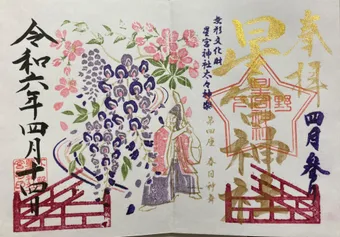 奉拝
四月参り
星宮神社
無形文化財
星宮神社太々神楽
第四座 春日神舞
令和六年四月十四日